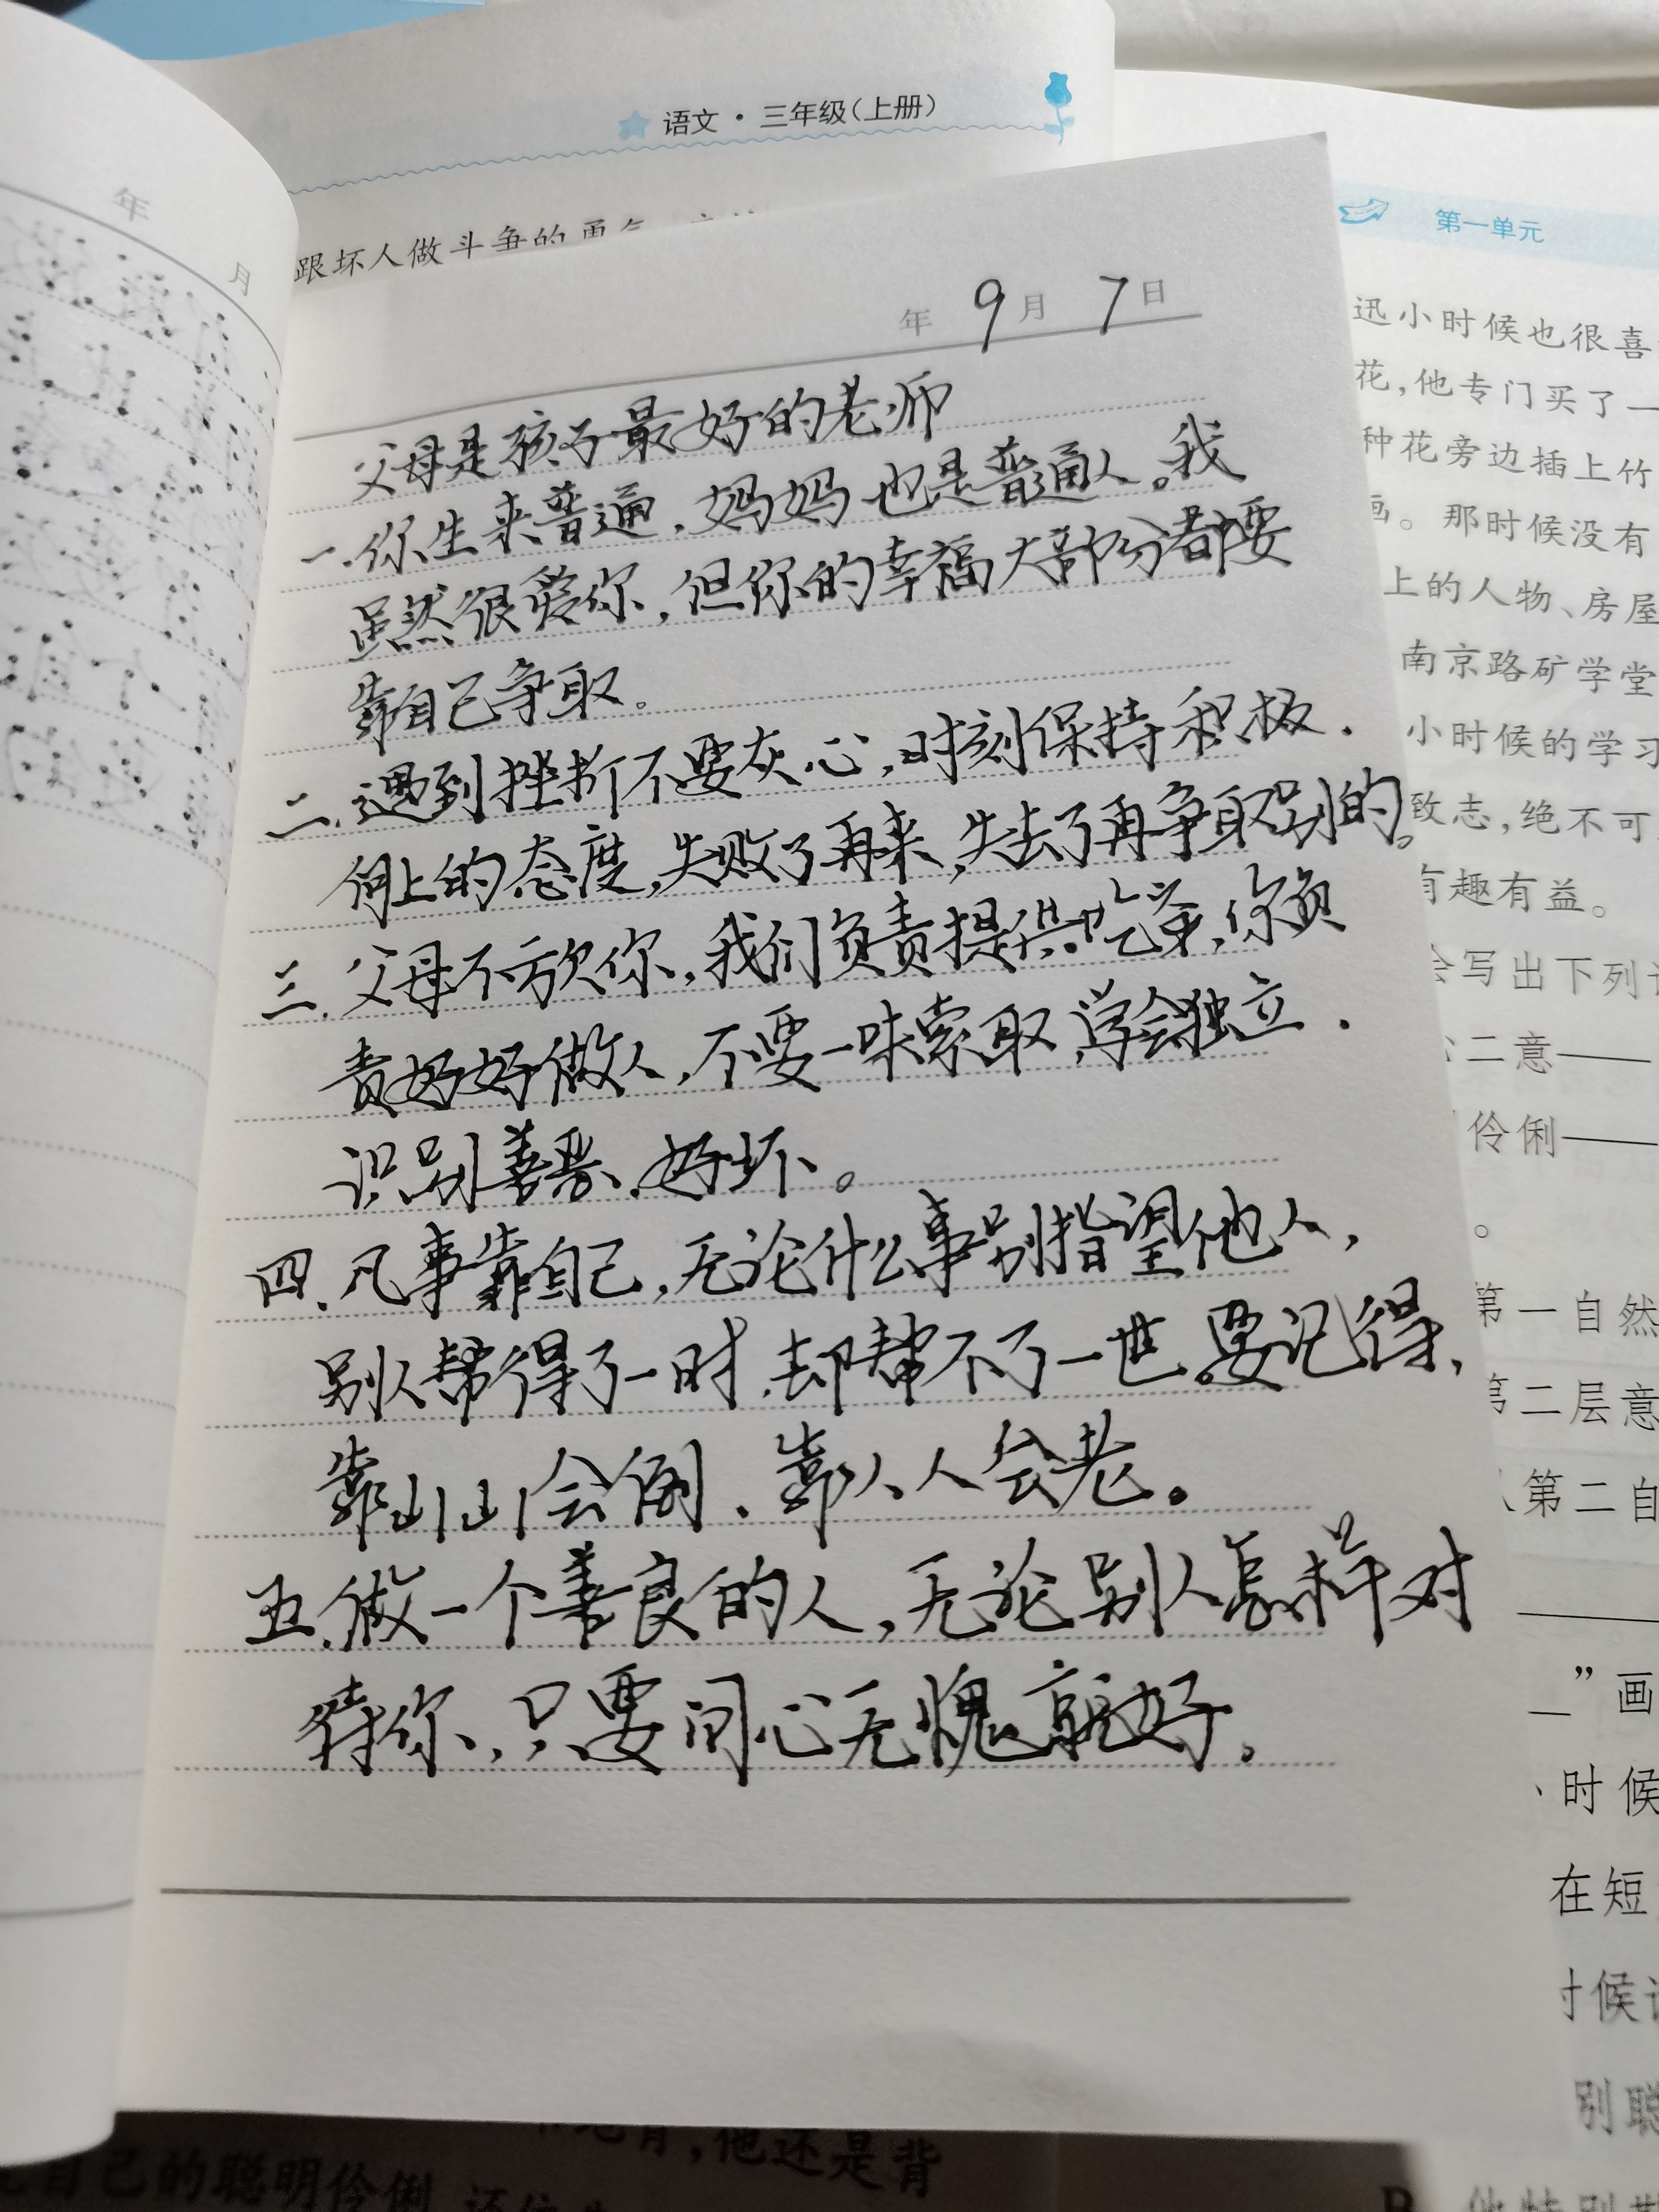 语文·三年级(上册)
跟坏人做斗争的勇气
年 9月 7日
父母是孩子最好的老师
一.你生来普通,妈妈也是普通人。我
虽然很爱你,但你的幸福大部分都要
靠自己争取。
二.遇到挫折不要灰心,时刻保持积极.
向上的态度,失败了再来,失去了再争取别的。
三.父母不欠你,我们负责提供吃穿,你负
责好好做人,不要一味索取,学会独立.
识别善恶、好坏。
四.凡事靠自己,无论什么事别指望他人,
别人帮得了一时,却帮不了一世。要记得,
靠山山会倒、靠人人会老。
五.做一个善良的人,无论别人怎样对
待你,只要问心无愧就好。
年 月
第一单元
迅小时候也很喜
花,他专门买了一
种花旁边插上竹
画。那时候没有
上的人物、房屋
南京路矿学堂
小时候的学习
致志,绝不可
有趣有益。
会写出下列
二意——
伶俐——
。
第一自然
第二层意
第二自
”画
、时候
在短
时候
别聪
,他还是背
自己的聪明伶俐
B
他特别